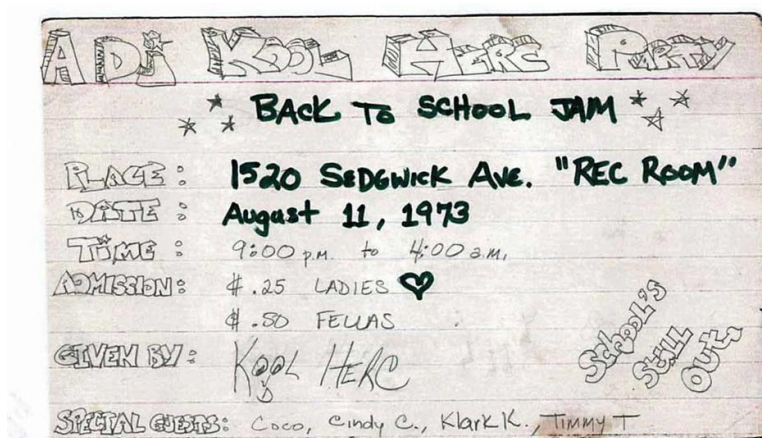 A DJ KOOL HERC PARTY
BACK TO SCHOOL JAM
PLACE: 1520 SEDGWICK AVE. "REC ROOM"
DATE: August 11, 1973
TIME: 9:00 p.m. to 4:00 a.m.
ADMISSION: $.25 LADIES
$.50 FELLAS
School's
Still
Out,
GIVEN BY: KOOL HERC
SPECIAL GUESTS: Coco, Cindy C., Klark K., Timmy T